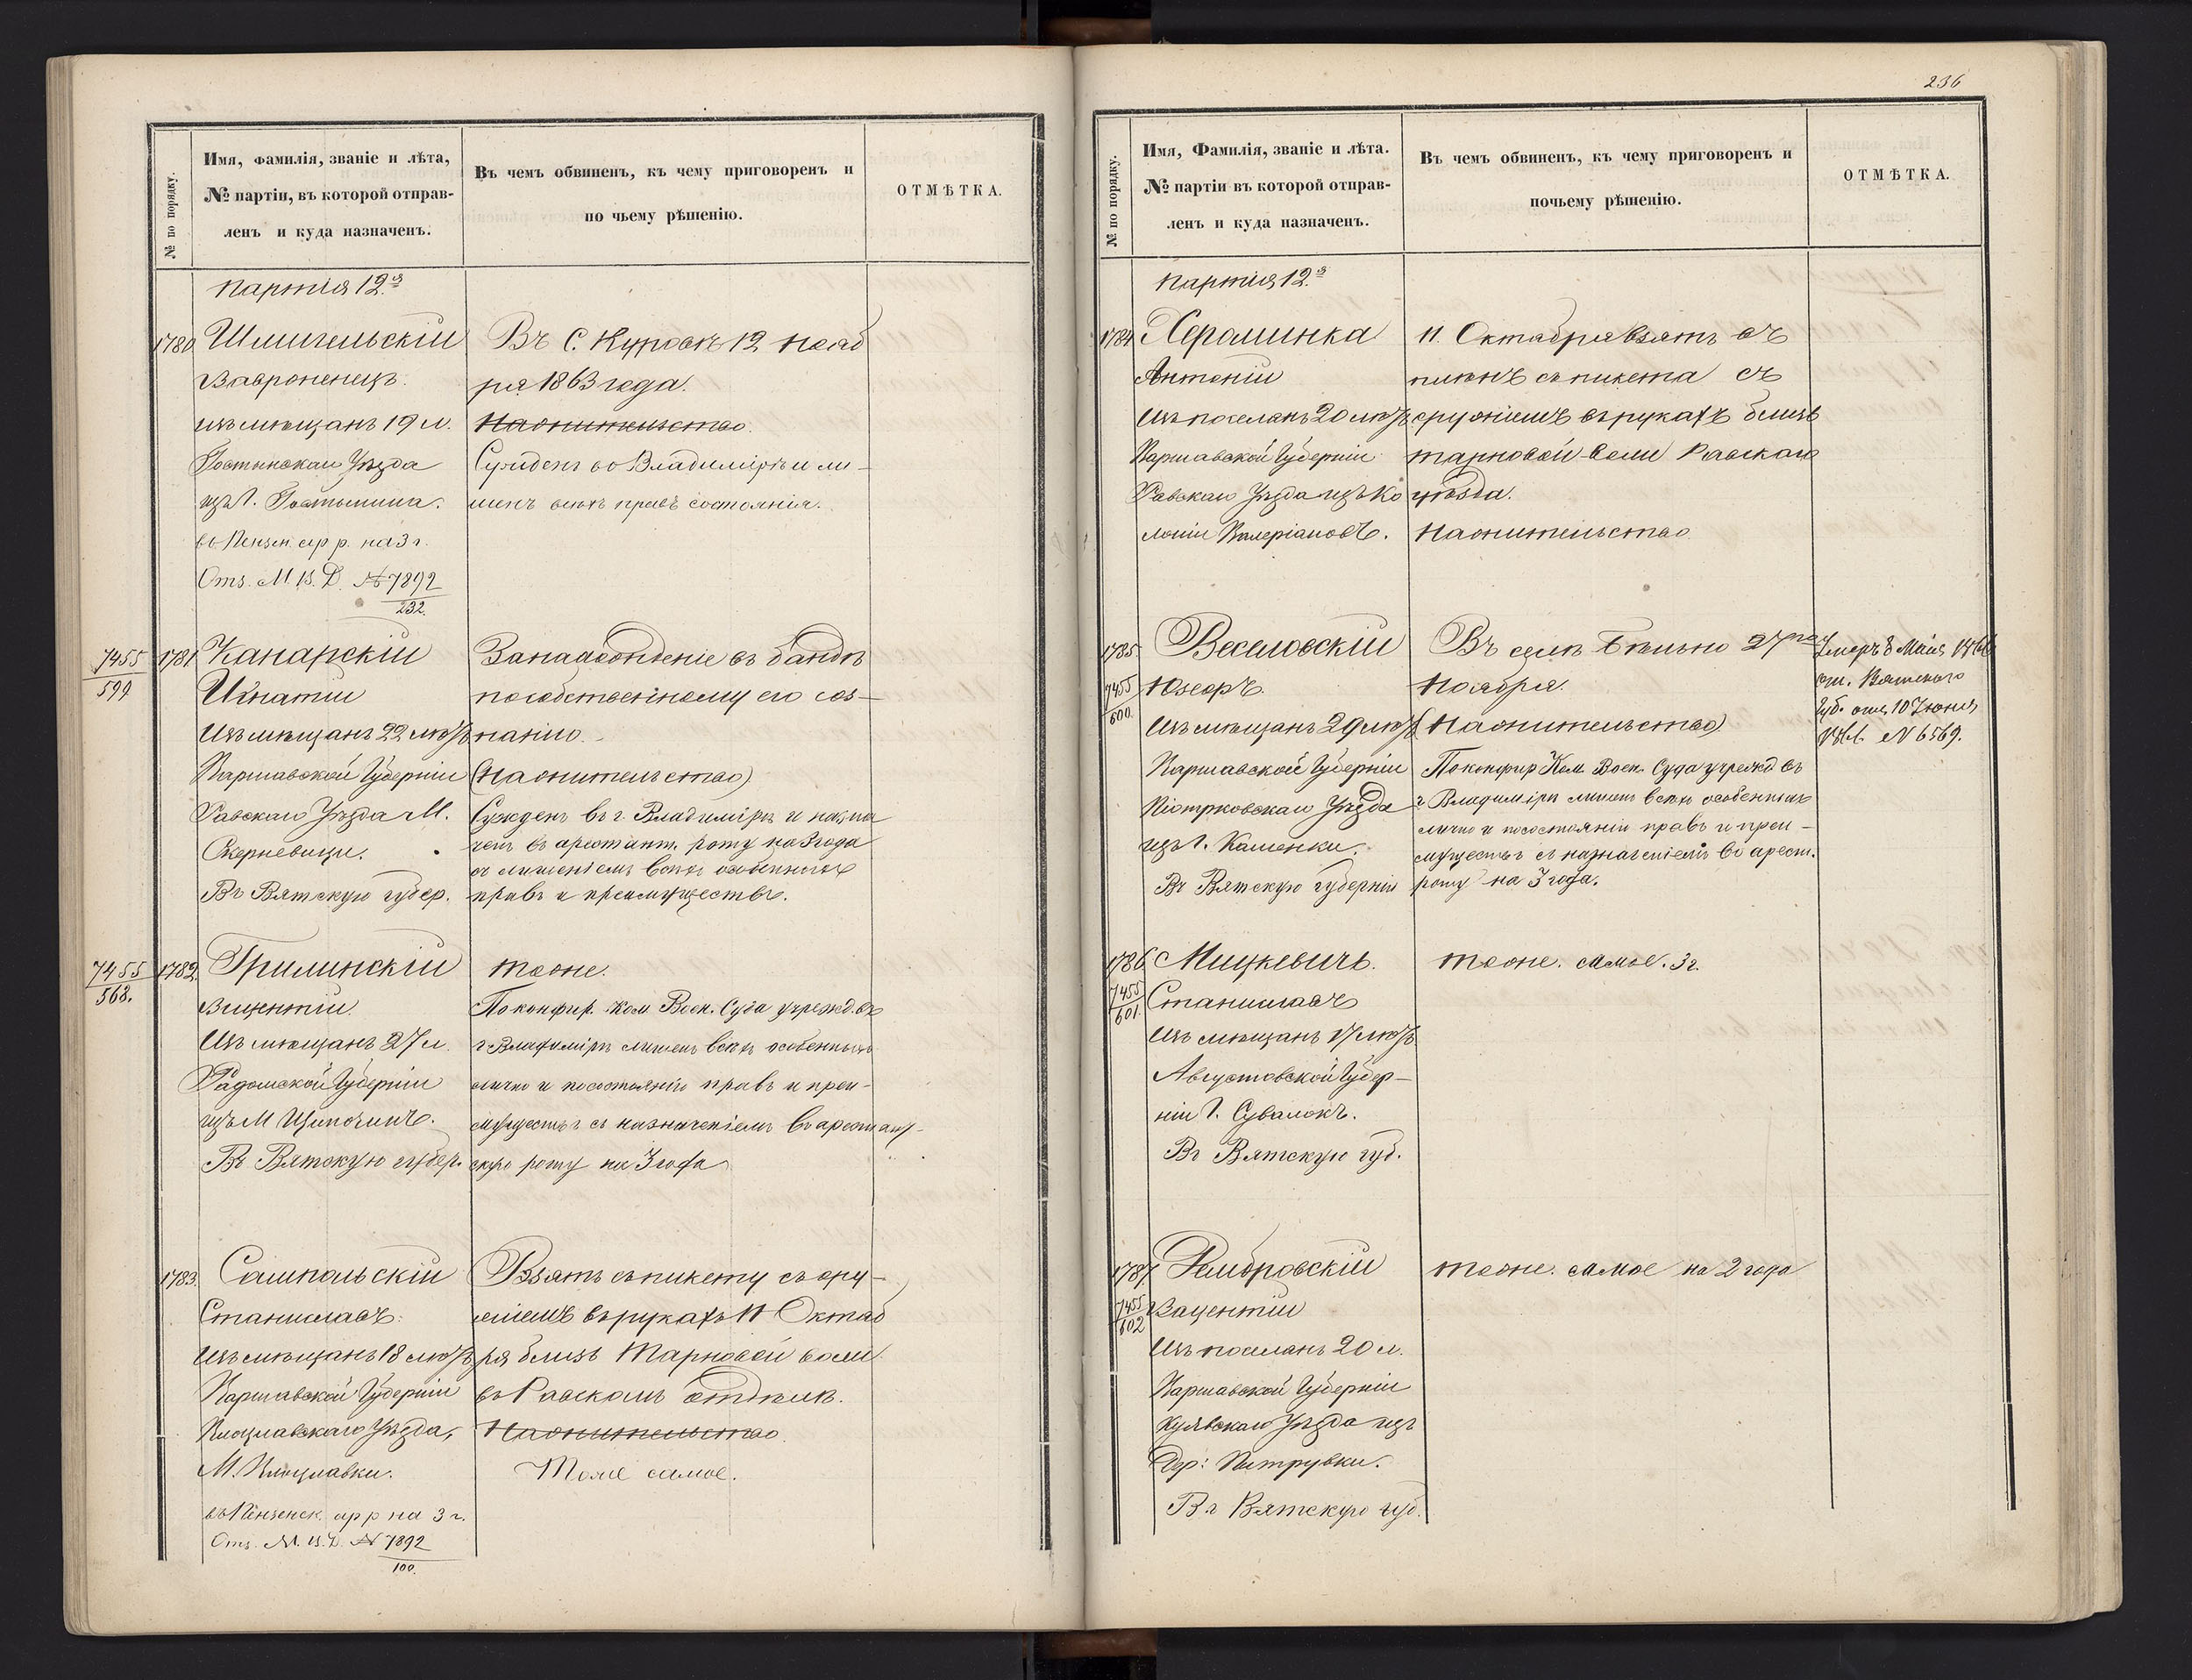 № по порядку.
Имя, Фамилія, званіе и лѣта,
№ партіи, въ которой отправ-
ленъ и куда назначенъ.
Въ чемъ обвиненъ, къ чему приговоренъ и
по чьему рѣшенію.
ОТМѢТКА.
Партія 12.я
1780
Шмигельскій
Вавроненецъ.
изъ мѣщанъ 19 л.
Гостынскаго Уѣзда
изъ Г. Гостынина.
въ Пензен. ар р. на 3 г.
Отз. М. В. Д. № 7892
232.
Въ С. Куровѣ 12 Нояб
ря 1863 года.
Наонительство.
Сужденъ во Владимірѣ и ли-
шенъ всѣхъ правъ состоянія.
7455
599
1781
Канарскій
Игнатій
Изъ мѣщанъ 22 лѣтъ
Варшавской Губерніи
Равскаго Уѣзда М.
Скерневицы.
Въ Вятскую губер.
Занахожденіе въ бандѣ
пособственному его соз-
нанію.
(Наонительство)
Сужденъ въ г. Владимірѣ и назна
ченъ въ арестант. роту на 3 года
съ лишеніемъ всѣхъ особенныхъ
правъ и преимуществъ.
7455
568.
1782.
Грилинскій
Вицентій
Изъ мѣщанъ 27 л.
Радомской Губерніи
изъ М
Въ Вятскую губер.
Тоже.
По конфир. Ком Воен. Суда учрежд. въ
г Владимірѣ лишенъ всѣхъ особенныхъ
лично и посостоянію правъ и преи-
муществъ съ назначеніемъ въ арестант-
скую роту на 3 года
1783.
Сампольскій
Станиславъ.
Изъ мѣщанъ 18 лѣтъ
Варшавской Губерніи
Влоцлавскаго Уѣзда,
М. Влоцлавки.
въ Пензенск. ар р на 3 г.
Отз. М. В. Д. № 7892
100.
Взятъ съ пикету съ ору-
жіемъ въ рукахъ 11 Октяб
ря близъ Тарновой воли
въ Равскомъ отдѣлѣ.
Наонительство.
Тоже самое.
236
№ по порядку.
Имя, Фамилія, званіе и лѣта.
№ партіи въ которой отправ-
ленъ и куда назначенъ.
Въ чемъ обвиненъ, къ чему приговоренъ и
почьему рѣшенію.
ОТМѢТКА.
Партія 12.я
1784
Херашинка
Антоній
Изъ поселянъ 20 лѣтъ
Варшавской Губерніи
Равскаго Уѣзда изъ Ко
лоніи Валеріановъ.
11. Октября взятъ въ
плѣнъ съ пикета съ
оружіемъ въ рукахъ близъ
Тарновой-Воли Равскаго
уѣзда.
Наонительство
1785.
7455
600.
Веселовскій
Юзефъ.
Изъ мѣщанъ 29 лѣтъ
Варшавской Губерніи
Піотрковскаго Уѣзда
изъ Г. Каменки.
Въ Вятскую губернію
Въ селѣ Бѣльно 27го
Ноября.
(Наонительство)
По конфир Ком Воен. Суда учрежд въ
г Владимірѣ лишенъ всѣхъ особенныхъ
лично и посостоянію правъ и преи-
муществъ съ назначеніемъ въ арест.
роту на 3 года.
Умеръ 8 Мая 1866
от. Вятскаго
Губ. отъ 10 Іюня
1866 № 6569.
1786
7455
601.
Мицкевичъ.
Станиславъ
Изъ мѣщанъ 17 лѣтъ
Августовской Губер-
ніи Г. Сувалокъ.
Въ Вятскую губ.
тоже. самое. 3 г.
1787.
7455
602
Рембровскій
Вацентій
Изъ поселянъ 20 л.
Варшавской Губерніи
Куявскаго Уѣзда изъ
Дер: Петрувки.
Въ Вятскую губ.
тоже. самое на 2 года